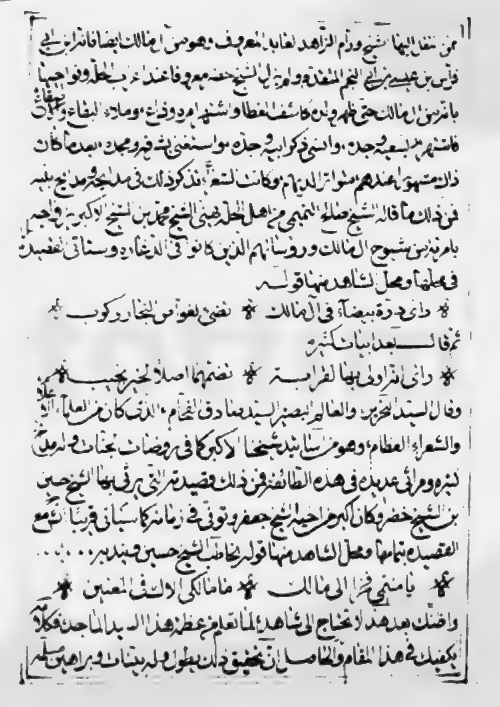 ممن ننقل اليها الشيخ ورام الزاهد العابد المعروف وهو من آل مالك ايضا فانه ابن ابي
فراس بن عيسى بن ابي النجم المتقدم ولم يزل الشيخ خضر معروفا عند اعراب الحلة ونواحيها
بانه من آل مالك حتى ظهر ولده كاشف الغطا واشتهر امره وذاع وملاء البقاع
فاشتهر بـ وجده وانسى ذكر ابيه وجده واستغنى بشرفه ومجده بعد ما كان
ذلك مشهورا عندهم متواترا لديهم وكانت الشعراء تذكر ذلك في مدايحه ومدايح بنيه
فمن ذلك ما قاله الشيخ صالح التميمي من اهل الحلة يهنى الشيخ محمد بن الشيخ الاكبر
بامرئة من شيوخ آل مالك ورؤسائهم الذين كانوا في الدغاره وستاتي القصيدة
في محلها ومحل الشاهد منها قوله
وارى درة بيضاء في آل مالك تضئ لغواص البحار ركوب
ثم قال بعد ابيات كثيره
وارى اقترابا بها لقرابة تضمهما اصلا لخير نجيب
وقال السيد النحرير والعالم البصير السيد صادق الفحام الذي كان من العلماء
والشعراء العظام وهو من اساتيد شيخنا الاكبر كما في روضات الجنات وله مدايح
كثيره ومراثي عديده في هذه الطائفة فمن ذلك قصيدته التي يرثي بها الشيخ حسين
بن الشيخ خضر وكان اكبر من اخيه الشيخ جعفر وتوفي في زمانه كما سياتي قريبا انشاء مع
القصيده بتمامها ومحل الشاهد منها قوله يخاطب الشيخ حسين ويندبه
يا منتمي فخرا الى مالك ما مالكي الاك في المعنيين
واظنك بعد هذا لا تحتاج الى شاهد لما تعلم من عظمة هذا السيد الماجد فكلامه
يكفيك في هذا المقام والحاصل ان تحقيق ذلك يطول وله بينات وبراهين